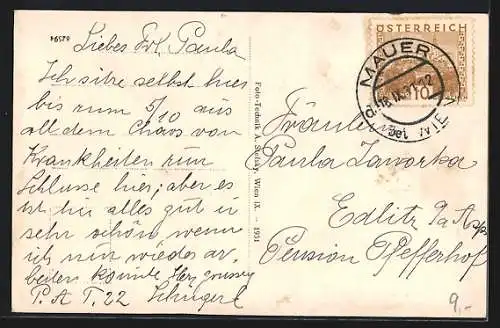 62594
Liebes Frl. Paula
Ich sitze selbst hier
bis zum 5/10 aus
all dem Chaos von
Krankheiten zum
Schlusse hier; aber es
ist hier alles gut u
sehr schön wenn
ich nur wieder ar-
beiten könnte Herzgrüsse
P. A T. 22
Foto-Technik A. Wien IX. — 1931
ÖSTERREICH
10
MAUER
bei WIEN
Fräulein
Paula Jaworka
Edlitz a/Asp.
Pension Pfefferhof
9,-